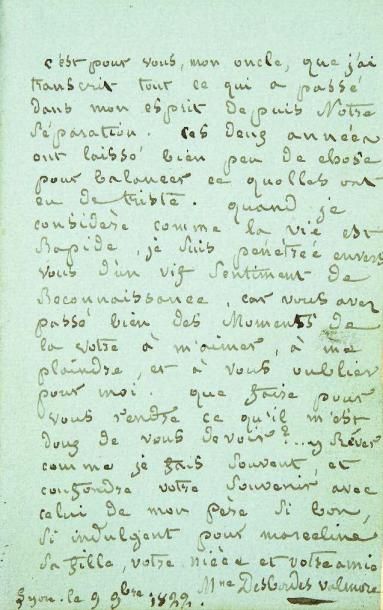 c'est pour vous, mon oncle, que j'ai
transcrit tout ce qui a passé
dans mon esprit depuis Notre
Séparation. Ces deux années
ont laissé bien peu de chose
pour balancer ce qu'elles ont
eu de triste. quand je
considère comme la vie est
Rapide, je suis pénétrée envers
vous d'un vif Sentiment de
Reconnaissance, car vous avez
passé bien des Moments de
la votre à m'aimer, à me
plaindre, et à vous oublier
pour moi. que faire pour
vous rendre ce qu'il m'est
doux de vous devoir?... y Rêver
comme je fais souvent, et
confondre votre Souvenir avec
celui de mon père si bon,
si indulgent pour marceline
Sa fille, votre nièce et votre amie
Mme Desbordes valmore
Lyon. le 9 9bre 1822.